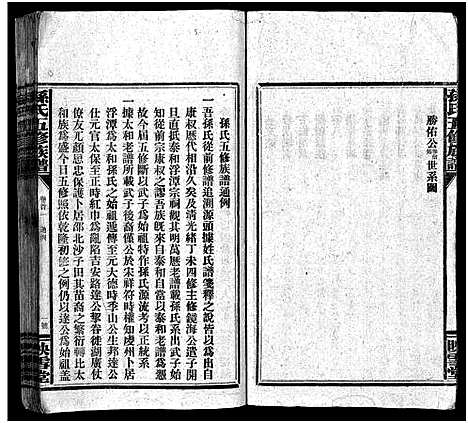 勝佑公世系圖
孫氏五修族譜
孫氏五修族譜通例
一吾孫氏從前修譜追溯源頭據姓氏譜箋釋之說皆以為出
康叔歷代相沿久矣及清光緒丁未四修主修鏡海公遺子例
旦直抵泰和浮潭宗祠觀其明萬歷老譜載孫氏系出武子始
知前此宗康叔之謬吾族既來自泰和自當以泰和老譜為憑
故今屆五修斷以武子為始祖特作孫氏源流考以正統系
一據太和老譜所載武子後裔僅公於宋祥符時權知虔州卜居
浮潭為太和孫氏之始祖遞傳至元大德時季山公生邦達公
仕元官太保至正時紅巾為亂陷吉安路達公挈眷徙湖廣仗
僚友元忠襄左卜居邵北沙子田其苗裔之繁衍轉比太
和族為盛今日五修照依乾隆初修之例仍以達公為始祖蓋
孫氏五修族譜
卷首
通例
一號
映雪堂
映雪堂